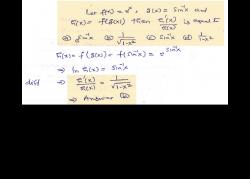 Let f(x) = eˣ, g(x) = sin⁻¹x and
h(x) = f(g(x)) then h'(x)/h(x) is equal to
(a) e^(sin⁻¹x) (b) 1/√(1-x²) (c) sin⁻¹x (d) 1/(1-x²)
h(x) = f(g(x)) = f(sin⁻¹x) = e^(sin⁻¹x)
⇒ ln h(x) = sin⁻¹x
diff ⇒ h'(x)/h(x) = 1/√(1-x²)
⇒ Answer (b)